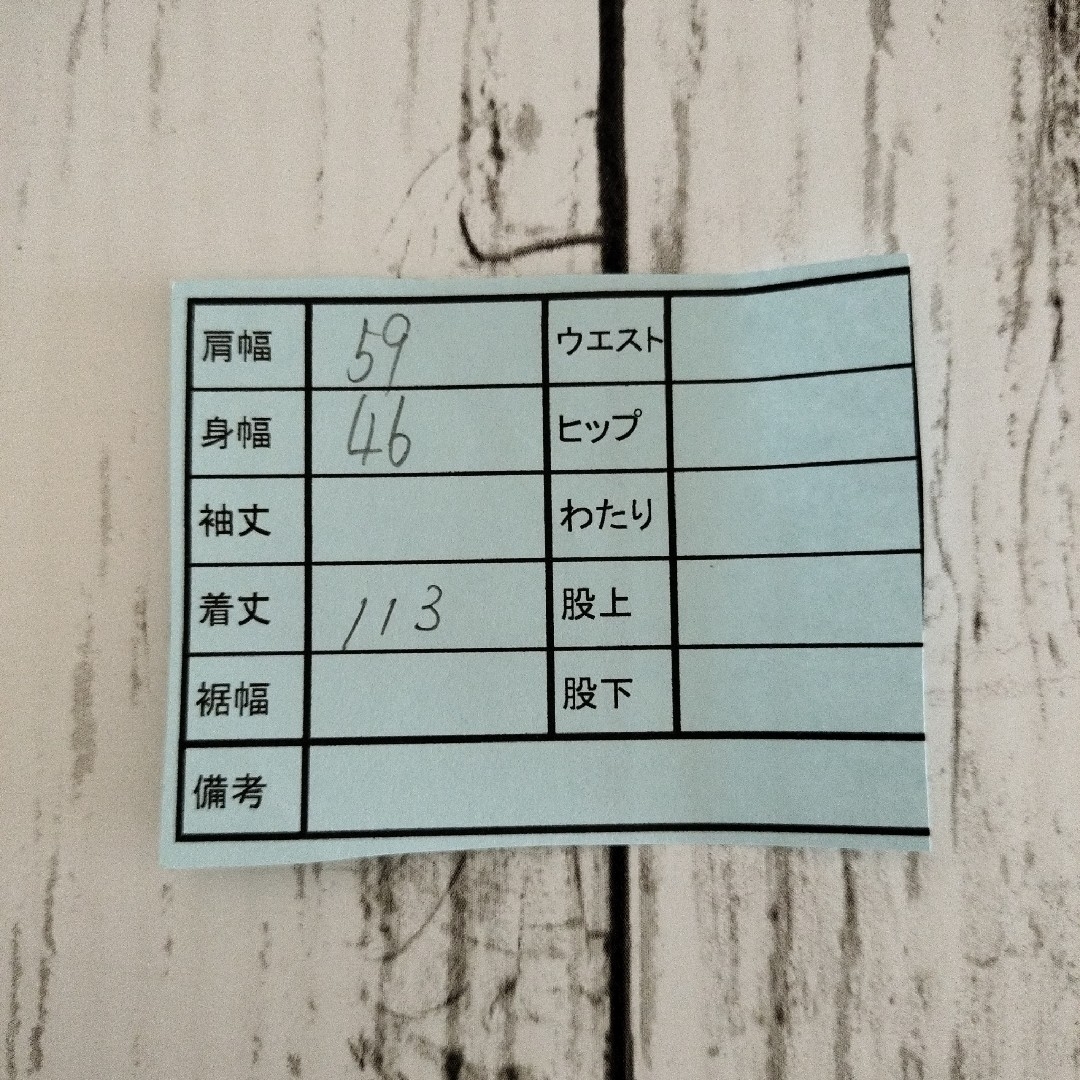 肩幅 59 ウエスト
身幅 46 ヒップ
袖丈 わたり
着丈 113 股上
裾幅 股下
備考